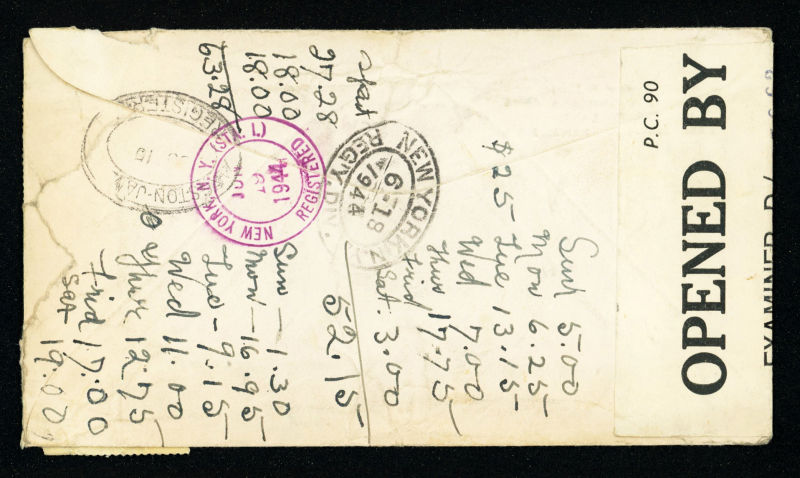 OPENED BY
P.C. 90
EXAMINER D/
NEW YORK, N.Y. (STA. L)
REGISTERED
JUN
19
1944
NEW YORK N.Y.
REG'Y. DIV.
6-18
1944
REGISTERED
STON-JA
$25-
Sun 5.00
Mon 6.25
Tue 13.15
Wed 7.00
Thur 17.75
Frid
Sat. 3.00
52.15
Sun - 1.30
Mon - 16.95
Tue - 9.15
Wed 11.00
Thur 12.75
Frid 17.00
Sat 19.00
27.28
18.00
18.00
63.28